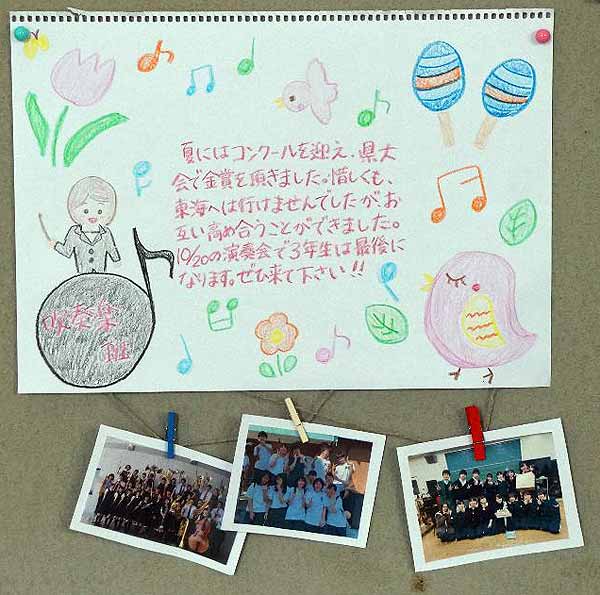 夏にはコンクールを迎え、県大
会で金賞を頂きました。惜しくも、
東海へは行けませんでしたが、お
互い高め合うことができました。
10/20の演奏会で3年生は最後に
なります。ぜひ来て下さい!!
吹奏楽
班